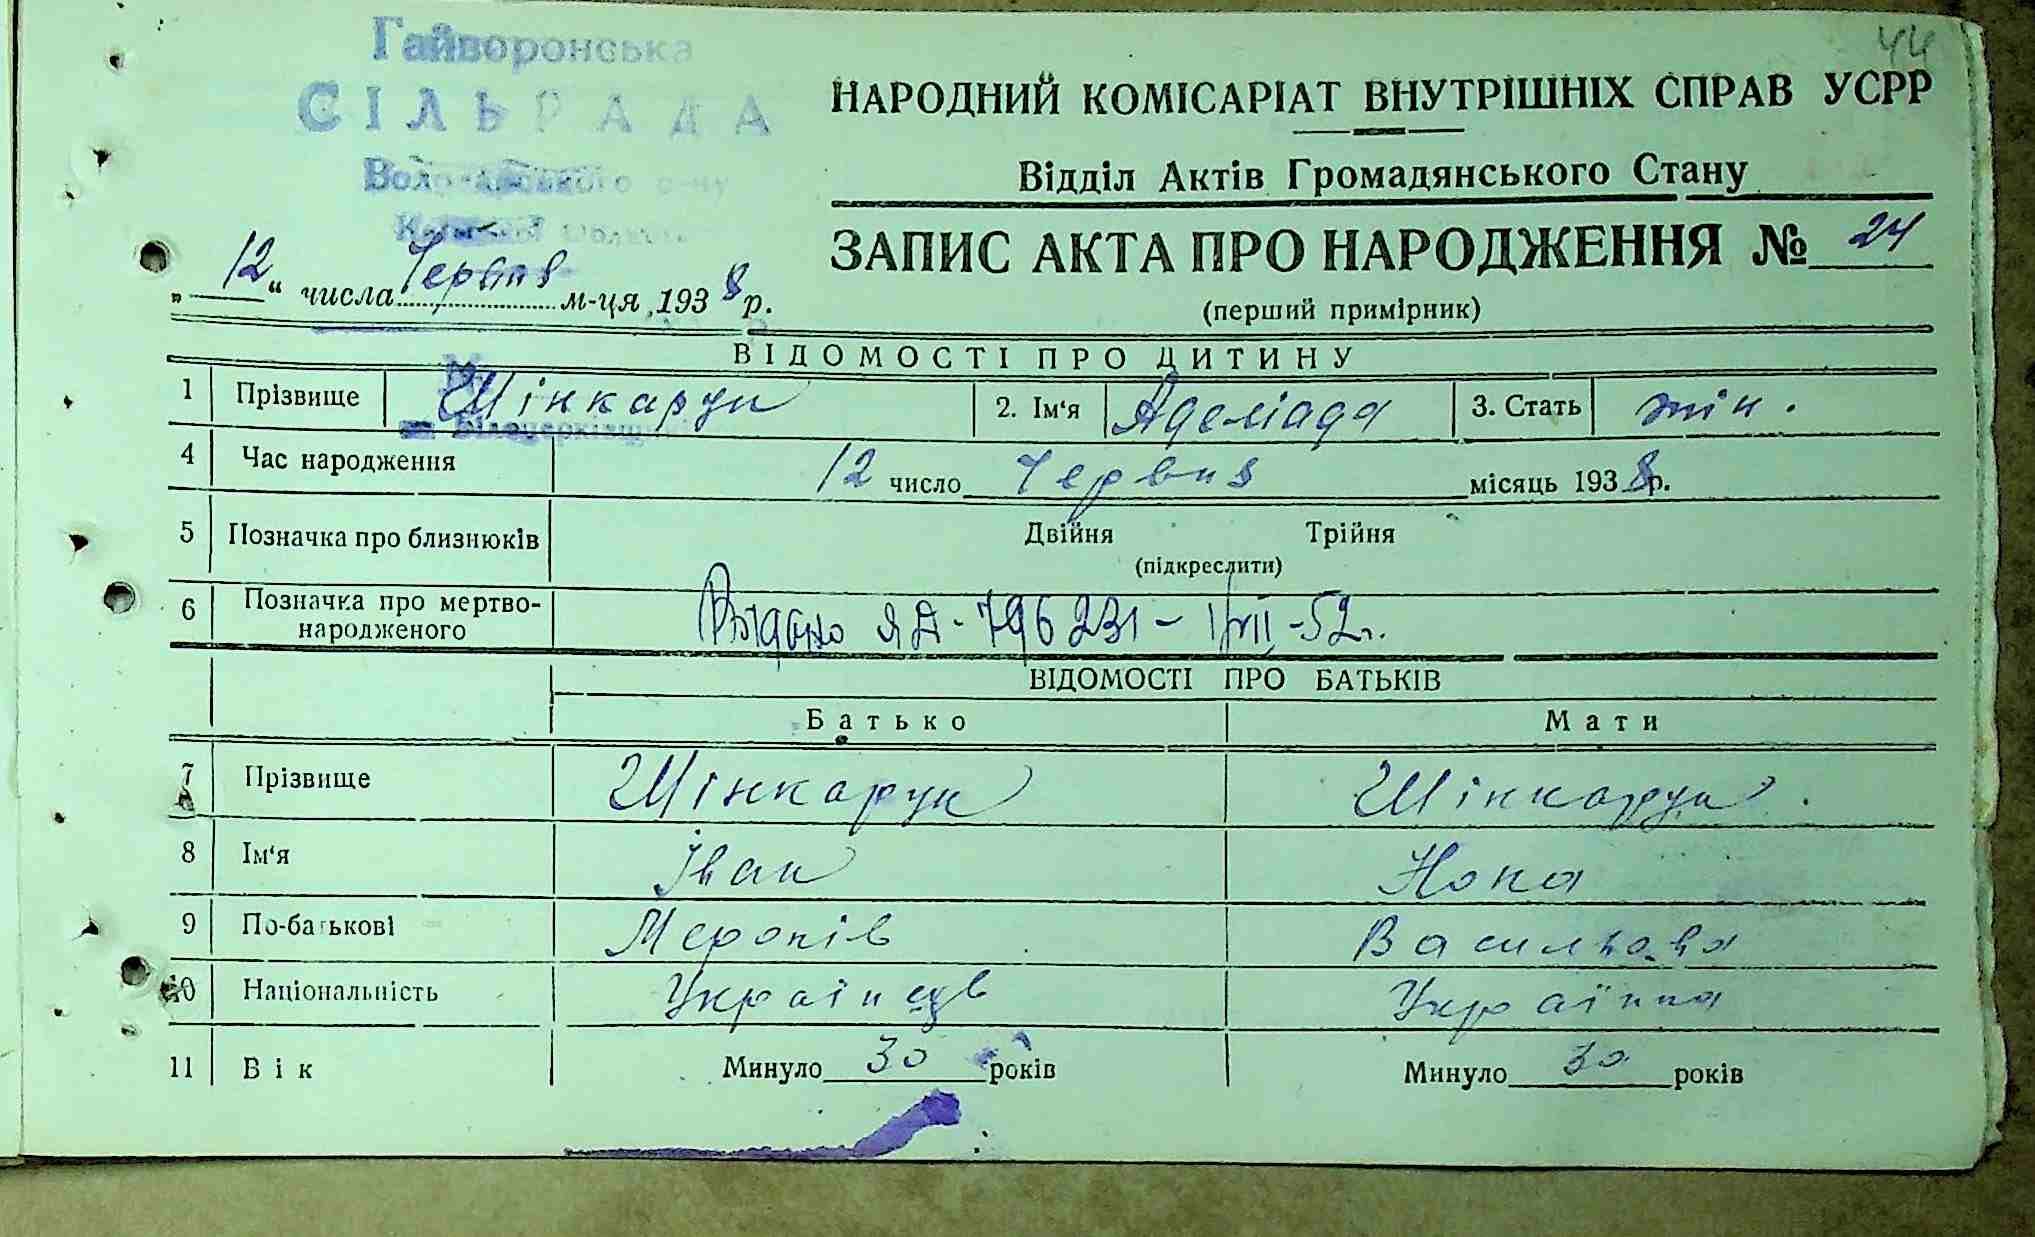 44
Гайворонська
СІЛЬРАДА
НАРОДНИЙ КОМІСАРІАТ ВНУТРІШНІХ СПРАВ УСРР
Відділ Актів Громадянського Стану
ЗАПИС АКТА ПРО НАРОДЖЕННЯ № 24
(перший примірник)
„12“ числа Червня м-ця 1938 р.
ВІДОМОСТІ ПРО ДИТИНУ
1 Прізвище Шінкарук 2. Ім'я Аделіада 3. Стать жін.
4 Час народження 12 число Червня місяць 1938 р.
5 Позначка про близнюків Двійня Трійня
(підкреслити)
6 Позначка про мертво-
народженого
ЯД-796231 - 1/VII-52 г.
ВІДОМОСТІ ПРО БАТЬКІВ
Батько Мати
7 Прізвище Шінкарук Шінкарук
8 Ім'я Іван Нона
9 По-батькові Меропів Васильова
10 Національність Українець Украінка
11 Вік Минуло 30 років Минуло 30 років